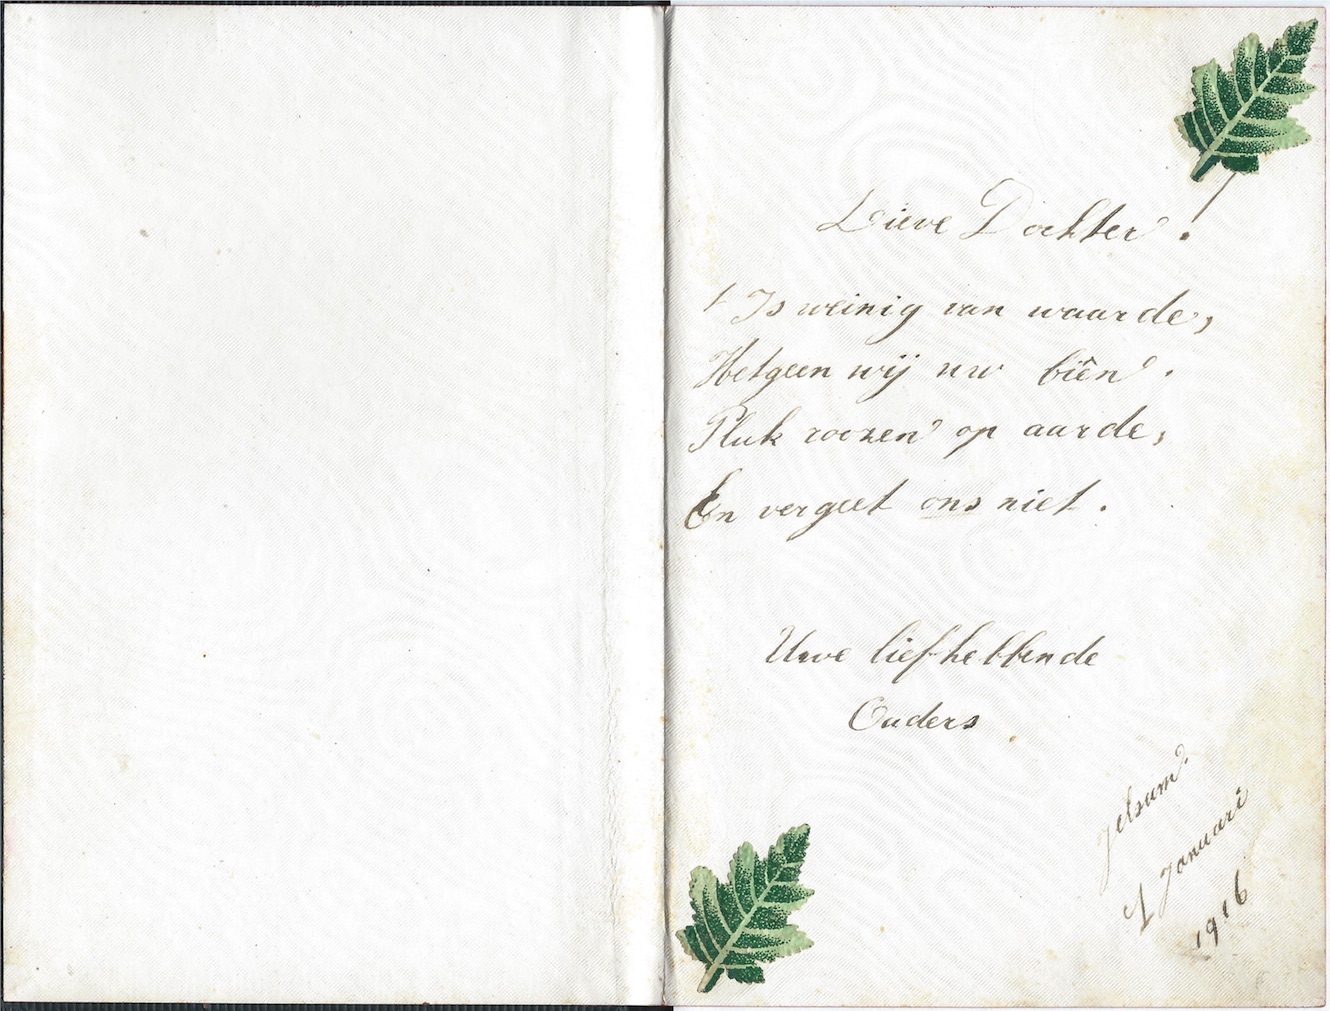 Lieve Dochter!
't Is weinig van waarde,
Hetgeen wij uw biên.
Pluk roozen op aarde,
En vergeet ons niet.
Uwe liefhebbende
Ouders
Jelsum.
1 Januari
1916